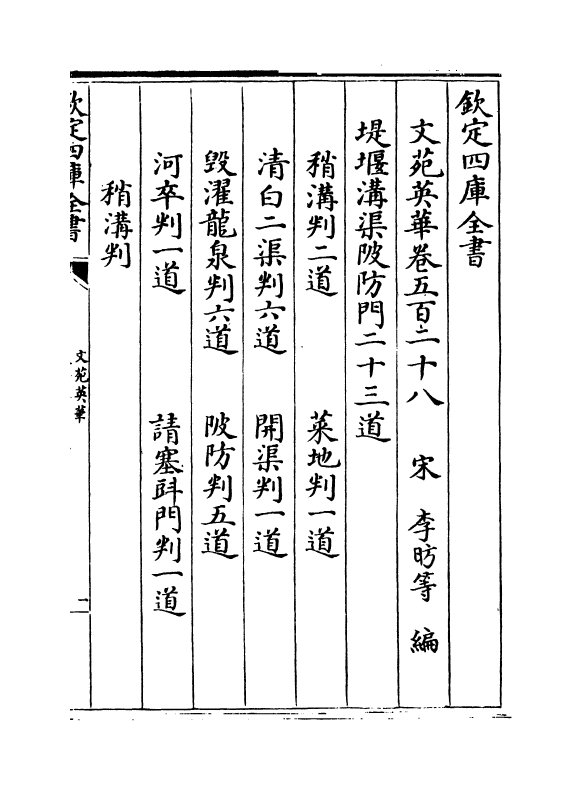 欽定四庫全書
文苑英華卷五百二十八 宋 李昉等 編
堤堰溝渠陂防門二十三道
稍溝判二道 菜地判一道
清白二渠判六道 開渠判一道
毀濯龍泉判六道 陂防判五道
河卒判一道 請塞㪷門判一道
稍溝判
欽定四庫全書 文苑英華 一